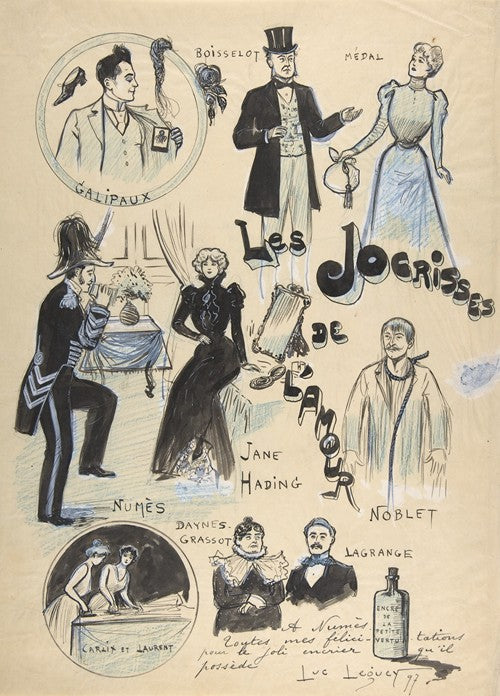 BOISSELOT
MÉDAL
GALIPAUX
LES JOCRISSES
DE
L'AMOUR
JANE
HADING
NUMÈS
NOBLET
DAYNES-
GRASSOT
LAGRANGE
CARLIX ET LAURENT
ENCRE
DE LA
PETITE
VERTU
A Numès
Toutes mes félici-tations
pour le joli encrier qu'il
possède
Luc Leguey 97